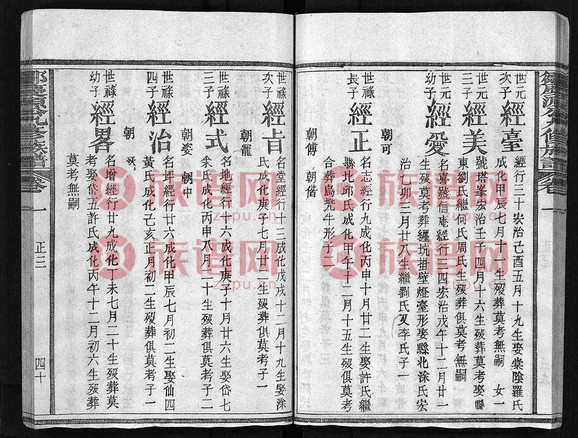 世元 經臺
經行三十宏治己酉五月十九生娶柴陰羅氏
成化甲辰七月十一生歿葬莫考無嗣 女一
世元 經美
號塔峯宏治壬子四月十六生歿莫考娶縣
東劉氏繼 氏周氏生歿葬俱莫考無嗣
世元 經愛
生歿莫考葬經坑掛壁燈臺形娶縣北涂氏宏
治 卯二月十八生繼劉氏又李氏子一
朝可
世祿長子 經正
名志經行九成化丙申十月廿五生娶許氏繼
縣北邱氏成化甲午十二月十二生歿俱莫考
合葬烏 牛形子二
朝傅 朝偕
世祿次子 經旨
名堂經行十三成化戊戌十二月十九生娶涂
氏成化庚子七月廿二生歿葬俱莫考子一
朝龍
世祿三子 經式
名地經行十六成化庚子十月廿六生娶岱七
余氏成化丙申八月二十生歿葬俱莫考子二
朝 朝中
世祿四子 經治
名 經行廿六成化甲辰七月初二生娶仙四
黃氏成化己亥正月初二生歿葬俱莫考子一
世祿幼子 經畧
名增經行廿九成化丁未七月二十生歿葬莫
考娶岱五許氏成化丙午十二月初六生歿葬
莫考無嗣
正三
四十
族谱网
zupu.cn